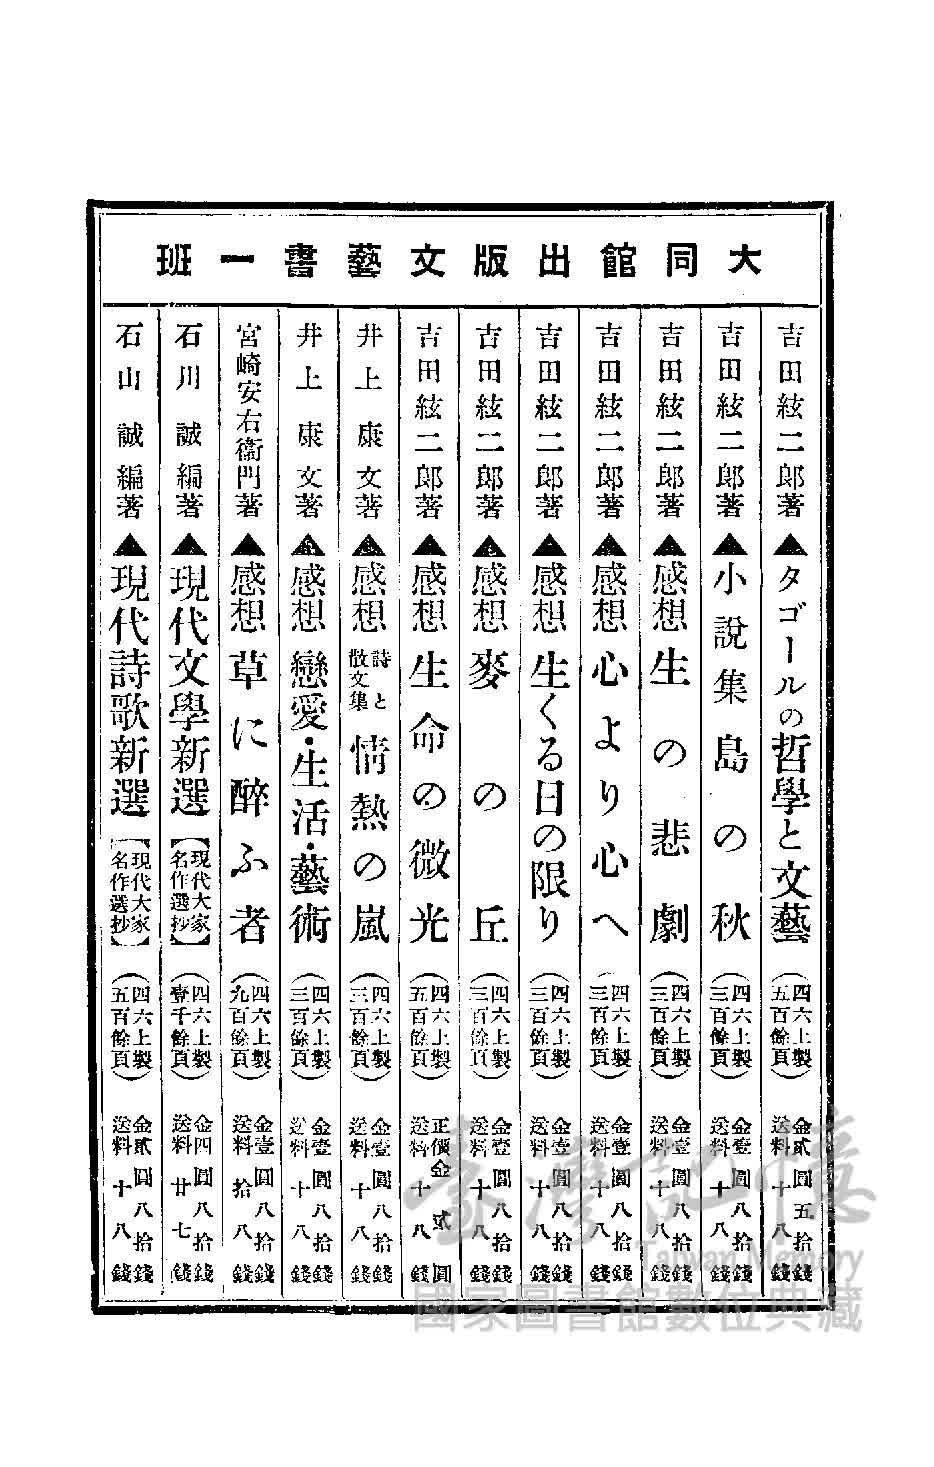 大同館出版文藝書一班
吉田絃二郎著▲タゴールの哲學と文藝（四六上製五百餘頁）金貳圓五拾錢送料十八錢
吉田絃二郎著▲小說集島の秋（四六上製三百餘頁）金壹圓八拾錢送料十八錢
吉田絃二郎著▲感想生の悲劇（四六上製三百餘頁）金壹圓八拾錢送料十八錢
吉田絃二郎著▲感想心より心へ（四六上製三百餘頁）金壹圓八拾錢送料十八錢
吉田絃二郎著▲感想生くる日の限り（四六上製三百餘頁）金壹圓八拾錢送料十八錢
吉田絃二郎著▲感想麥の丘（四六上製三百餘頁）金壹圓八拾錢送料十八錢
吉田絃二郎著▲感想生命の微光（四六上製五百餘頁）正價金貳圓送料十八錢
井上康文著▲感想詩と散文集情熱の嵐（四六上製三百餘頁）金壹圓八拾錢送料十八錢
井上康文著▲感想戀愛・生活・藝術（四六上製三百餘頁）金壹圓八拾錢送料十八錢
宮崎安右衞門著▲感想草に醉ふ者（四六上製九百餘頁）金壹圓八拾錢送料拾八錢
石川誠編著▲現代文學新選【現代大家名作選抄】（四六上製壹千餘頁）金四圓八拾錢送料廿七錢
石山誠編著▲現代詩歌新選【現代大家名作選抄】（四六上製五百餘頁）金貳圓八拾錢送料十八錢
臺灣記憶
Taiwan Memory
國家圖書館數位典藏